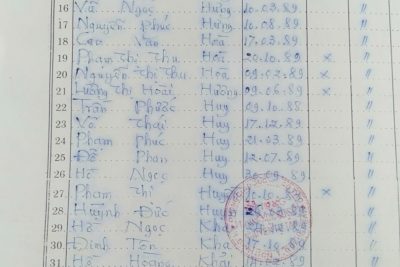 16 Vũ Ngọc Hưng 10.03.89 "
17 Nguyễn Phúc Hưng 10.08.89 "
18 Cao Văn Hoà 17.03.89 "
19 Phạm Thị Thu Hoà 20.10.89 × "
20 Nguyễn Thị Thu Hoà 09.02.89 × "
21 Lương Thị Hoài Hương 09.06.89 × "
22 Trần Phước Huy 09.10.88 "
23 Võ Thái Huy 17.12.89 "
24 Phạm Phúc Huy 21.03.89 "
25 Đỗ Phan Huy 12.07.89 "
26 Hồ Ngọc Huy 09.89 "
27 Phạm Thị 10.10 × "
28 Huỳnh Đức "
29 Hồ Ngọc "
30 Đinh Tôn 17.10 "
31 Hồ Hoàng Khải "